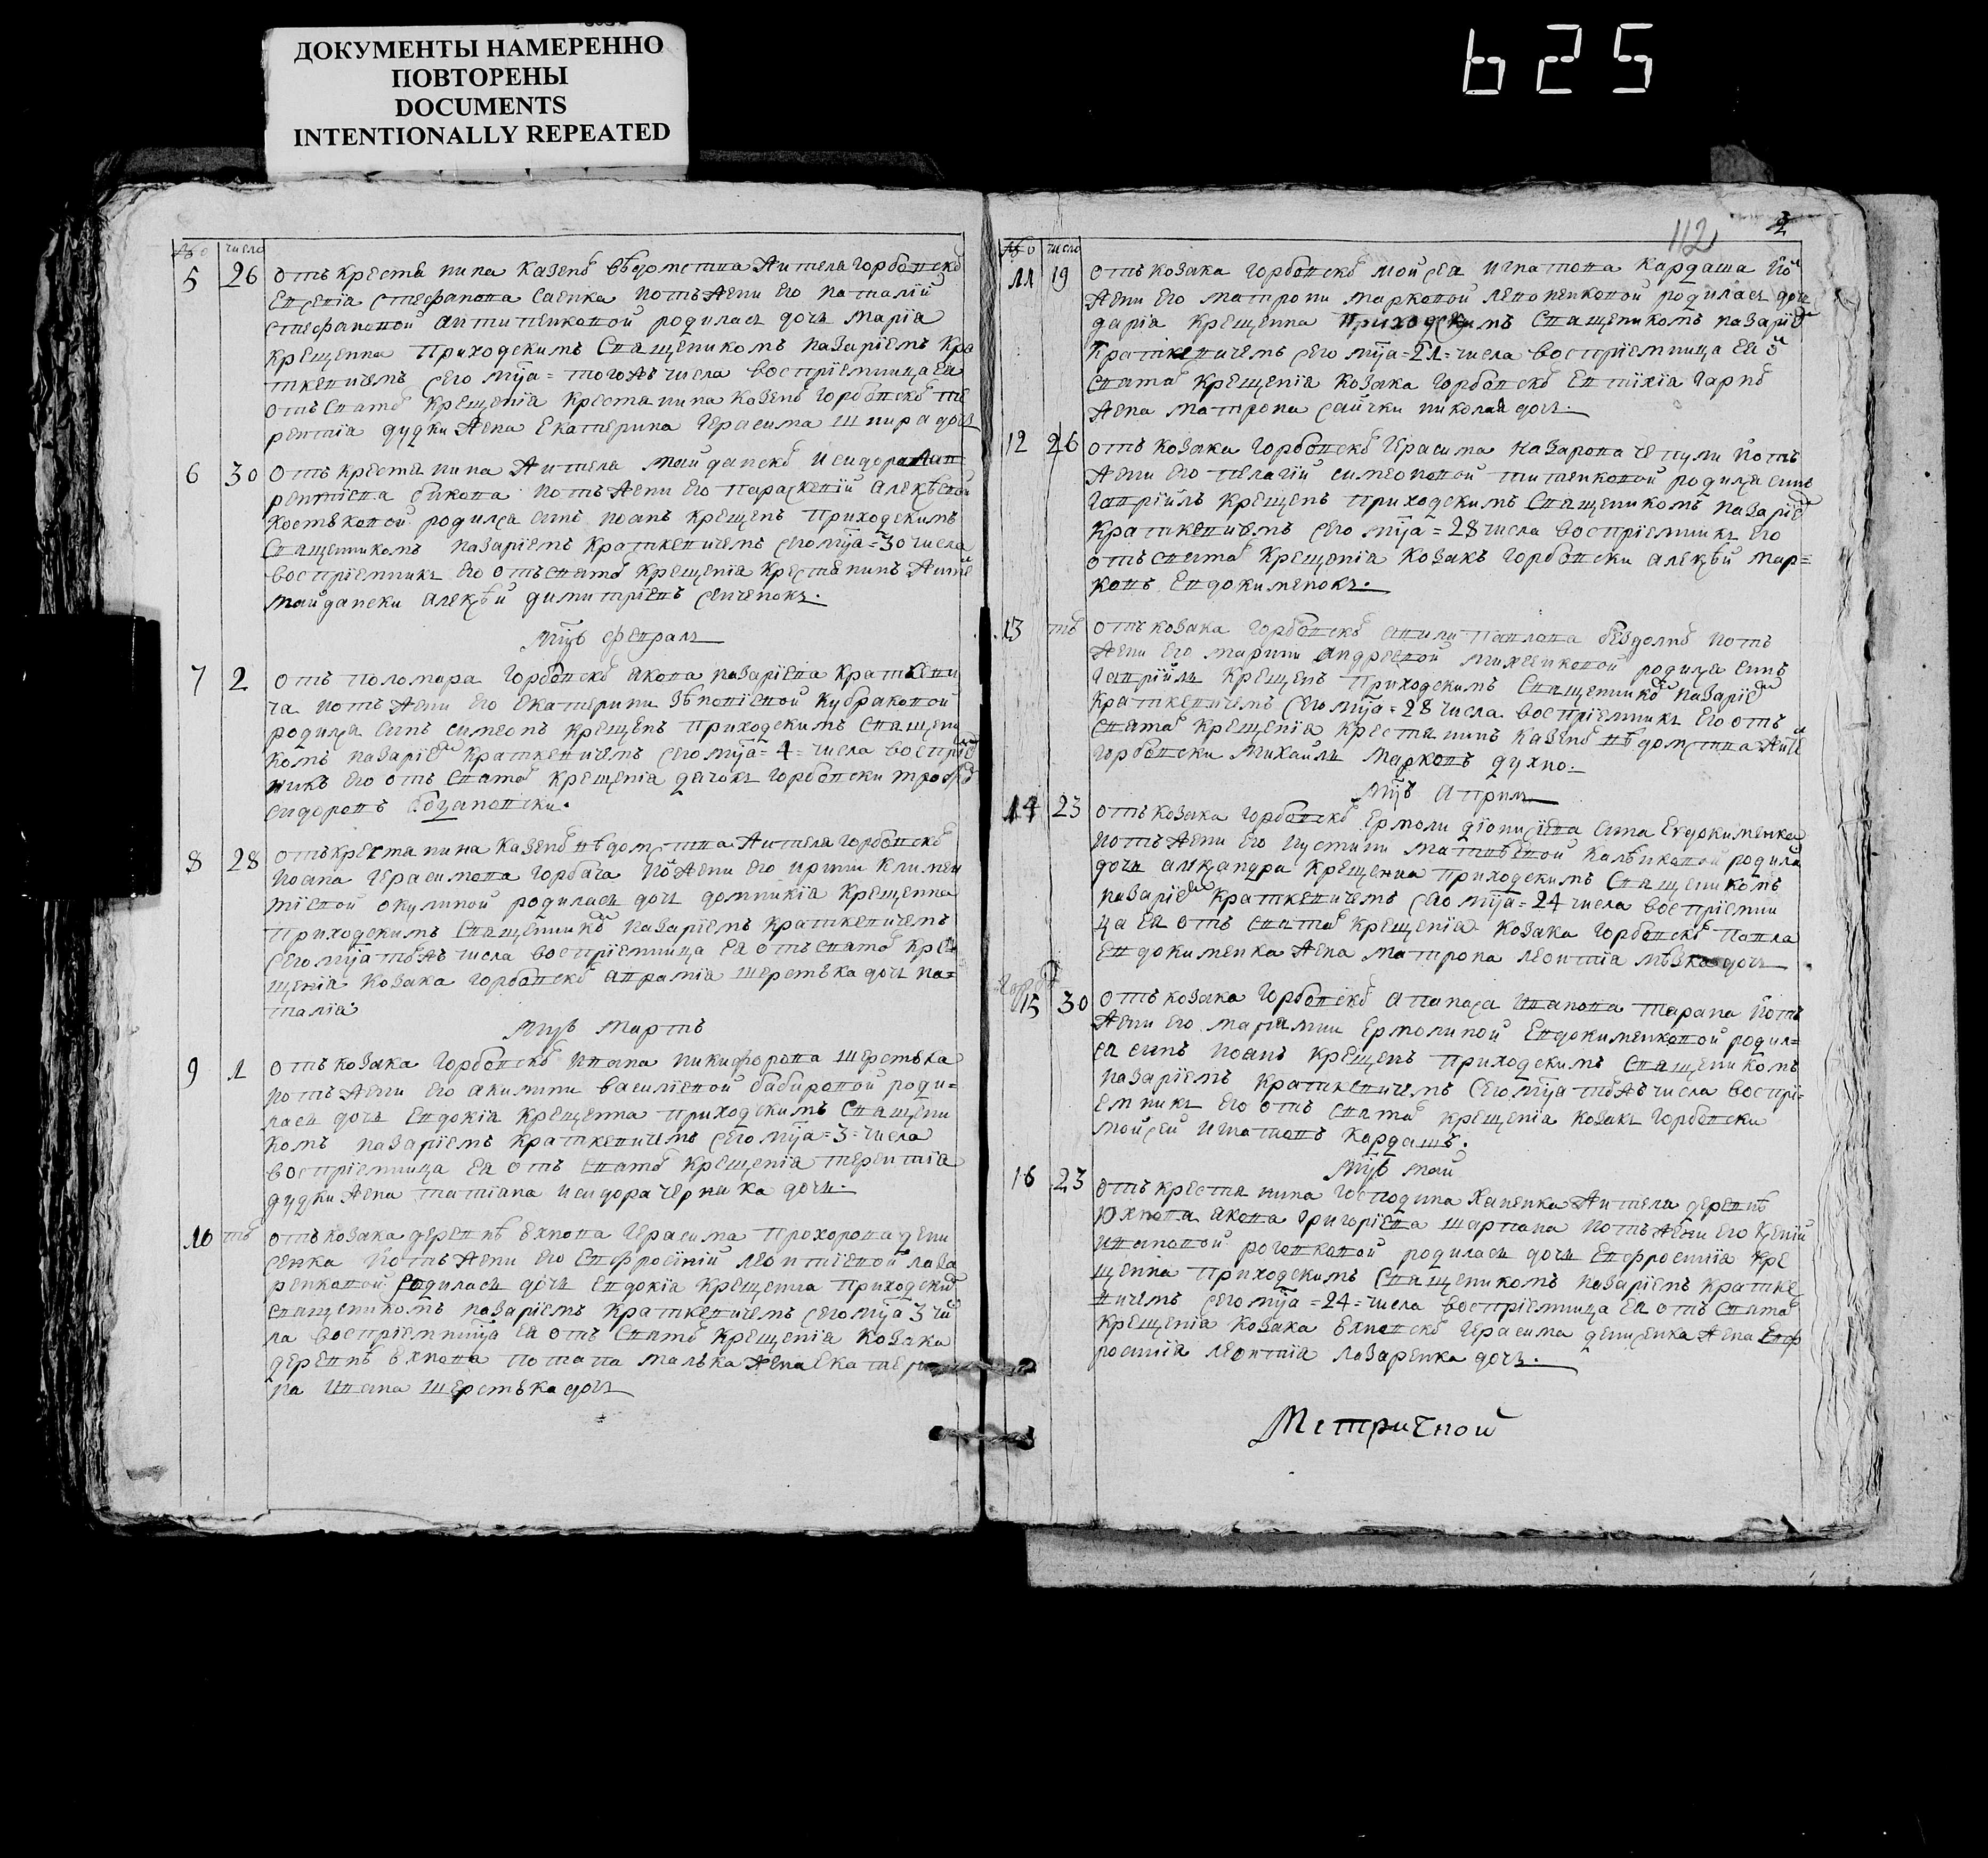 ДОКУМЕНТЫ НАМЕРЕННО
ПОВТОРЕНЫ
DOCUMENTS
INTENTIONALLY REPEATED
625
число
5 26 отъ крестянина казенъ въдомства жителя горбовскъ
Евсевіа Стефанова Саенка и отъ жени его Наталій
Стефановой Антипенковой родилась дочь Маріа
крещенна приходскимъ священикомъ Назаріемъ Кра
ткевичемъ сего мца = тогожъ числа воспріемница ея
отъ святъ крещеніа крестянина козенъ горбовскъ те
рентіа дудки жена Екатерина Герасима шпира дочь
6 30 отъ крестянина жителя майданскъ Исидора Лав
рентіева бикова и отъ жени его Параскевій Алексъевой
Костюковой родился синъ Иоанъ крещенъ приходскимъ
священникомъ Назаріемъ Краткевичемъ сего мца = 30 числа
воспріемникъ его отъ святъ крещеніа крестянинъ жите
майдански Алексъй Димитріевъ Сенченокъ.
мцъ февраль
7 2 отъ поломара горбовскъ Якова Назаріева Краткеви
ча и отъ жени его Екатерини Зъновіевой Кубраковой
родился синъ Симеонъ крещенъ приходскимъ священи
комъ Назаріе Краткевичемъ сего мца = 4 = числа воспріе
никъ его отъ святъ крещеніа дячокъ горбовски Трофи
Сидоровъ
8 28 отъ крестянина казенъ въдомства жителя горбовскъ
Иоана Герасимова Горбача и о жени его Ирини Климен
тіевой Окулиной родилась дочь Домникіа крещенна
приходскимъ священникъ Назаріемъ Краткевичемъ
сего мца тъжъ числа воспріемница ея отъ святъ кре
щеніа козака горбовскъ Авраміа Шерстюка дочь На=
таліа
мцъ мартъ
9 1 отъ козака горбовскъ Ивана Никифорова Шерстюка
и отъ жени его Акилини Василіевой Бабировой роди=
лась дочь Евдокіа крещенна приходскимъ священи
комъ Назаріемъ Краткевичемъ сего мца = 3 = числа
воспріемница ея отъ святъ крещеніа Терентіа
дудки жена Татіана Исидора Черняка дочь.
10 тъ отъ козака деревнъ Ехнова Герасима Прохорова Дени
сенка и отъ жени его Евфросиній Леонтіевой Лаза
ренковой родилась дочь Евдокіа крещенна приходски
священикомъ Назаріемъ Краткевичемъ сего мца 3 чи
ла воспріемница ея отъ святъ крещеніа козака
деревнъ Ехнова Потапа Малька жена Екатери
на Ивана Шерстюка дочь
112
число
11 19 отъ козака горбовскъ Мойсея Игнатова Кардаша и о
жени его Матрони Марковой Левоненковой родилась дочь
Даріа крещенна приходскимъ священикомъ Назаріе
Краткевичемъ сего мца = 21 = числа воспріемница ея
святъ крещеніа козака горбовскъ Евтіхіа Гарпъ
жена Матрона Сайчки Николая дочь.
12 26 отъ козака горбовскъ Герасима Назарова Чепули и отъ
жени его Пелагій Симеоновой Титенковой родился синъ
Гавріилъ крещенъ приходскимъ священикомъ Назаріе
Краткевичемъ сего мца = 28 числа воспріемникъ его
отъ святъ крещеніа козакъ горбовски Алексъй Мар=
ковъ Евдокименокъ.
13 тъ отъ козака горбовскъ Павлова Бездолнъ и отъ
жени его Марини Андреевой Михенковой родился синъ
Гавріилъ крещенъ приходскимъ священникъ Назаріе
Краткевичемъ сего мца = 28 числа воспріемникъ его отъ
святъ крещеніа крестянинъ казенъ въдомства жите
горбовски Михаилъ Марковъ Духно.
мцъ априль
14 23 отъ козака горбовскъ Ермоли Діонисіева сина Евдокименка
и отъ жени его Иустини Матвъевой Калъниковой родила
дочь Александра крещенна приходскимъ священикомъ
Назаріе Краткевичемъ сего мца = 24 числа воспріемни
ца ея отъ святъ крещеніа козака горбовскъ Павла
Евдокименка жена Матрона Леонтіа дочь
15 30 отъ козака горбовскъ Афанаса Иванова Тарана и отъ
жени его Маріамни Ермолиной Евдокименковой родил=
ся синъ Иоанъ крещенъ приходскимъ священикомъ
Назаріемъ Краткевичемъ сего мца тъжъ числа воспрі=
емникъ его отъ святъ крещеніа козакъ горбовски
Мойсей Игнатовъ Кардашъ.
мцъ май
16 23 отъ крестянина господина Ханенка жителя деревнъ
Юхнова Якова Григоріева Шарпана и отъ жени его Ксеній
Ивановой Рогенковой родилась дочь Евфросиніа кре
щенна приходскимъ священикомъ Назаріемъ Кратке
вичемъ сего мца = 24 = числа воспріемница ея отъ святъ
крещеніа козака Ехновскъ Герасима Денисенка жена Евф
росиніа Леонтіа Лазаренка дочь.
Метричной